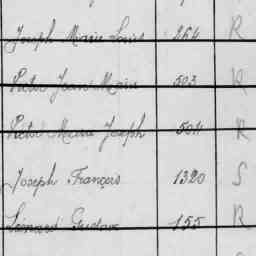 Joseph Marie Louis 264 R
Pierre Jean Marie 503 R
Pierre Marie Joseph 504 R
Joseph François 1320 S
Léonard Gustave 155 R